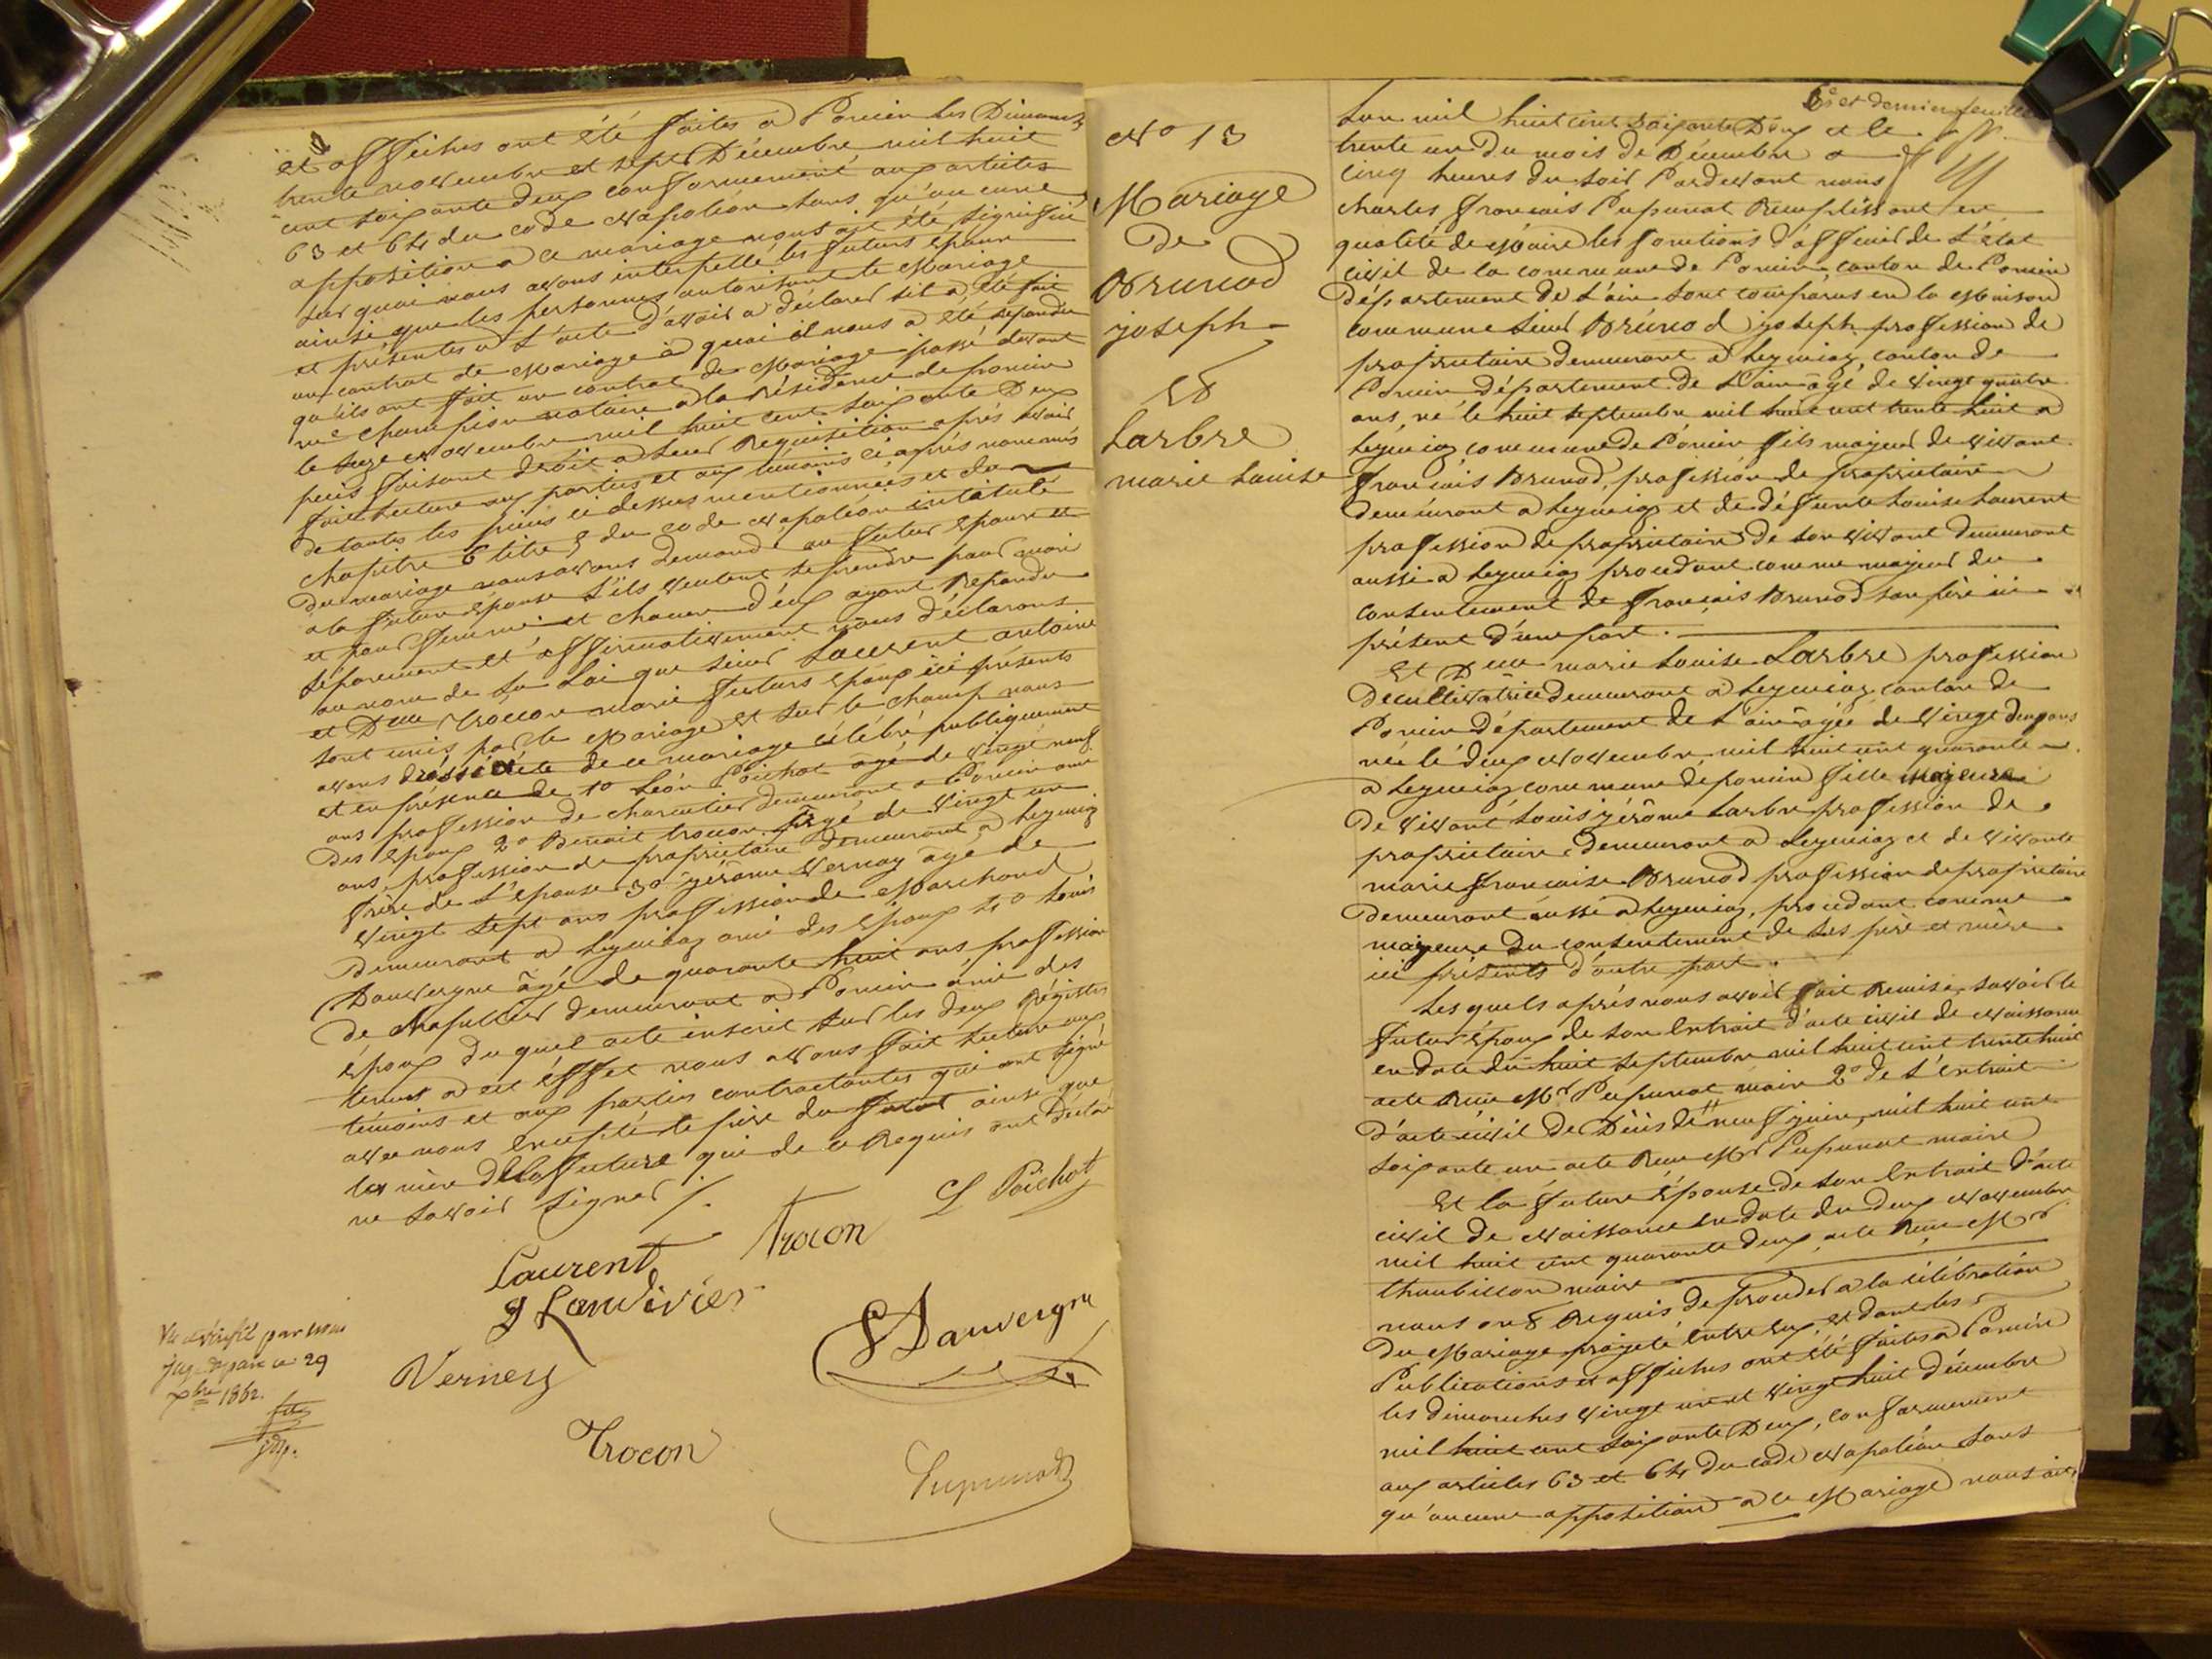 et affiches ont été faites a Poncin les Dimanches
trente novembre et sept Décembre mil huit
cent soixante deux conformement aux articles
63 et 64 du code Napoléon sans qu'aucune
opposition a ce mariage nous ait été signifiée
sur quoi nous avons interpellé les futurs époux
ainsi que les personnes autorisant le Mariage
et présentes a l'acte d'avoir a déclarer s'il a été fait
un contrat de Mariage à quoi il nous a été repondu
qu'ils ont fait un contrat de Mariage passé devant
me Champion notaire a la résidence de poncin
le Novembre mil huit cent soixante Deux
puis faisant droit a leur Requisition après avoir
fait lecture aux parties et aux témoins ci après nommés
de toutes les pièces ci dessus mentionnées et du
chapitre 6 titre 5 du code Napoléon intitulé
Du mariage nous avons demandé au futur époux et
a la future épouse s'ils veulent se prendre pour mari
et pour femme et chacun d'eux ayant Repondu
séparement et affirmativement nous déclarons
au nom de la Loi que sieur Laurent antoine
et Delle Trocon marie futurs époux ici présents
sont unis par le Mariage et sur le champ nous
avons dréssé acte de ce mariage célébré publiquement
et en présence de 1° Léon Poichot âgé de vingt neuf
ans profession de charcutier demeurant a Poncin ami
des époux 2° Benoit trocon âgé de vingt un
ans, profession de propriétaire demeurant a Leymiaz
frère de l'épouse 3° gérôme Vernay âgé de
vingt sept ans profession de Marchand
demeurant a Leymiaz ami des époux 4° Louis
Dauvergne âgé de quarante huit ans profession
de chapellier demeurant a Poncin ami des
époux duquel acte inscrit sur les deux Régistres
tenus a cet éffet nous avons fait lecture aux
témoins et aux parties contractantes qui ont signé
avec nous excepté le père du futur ainsi que
la mère de la future qui de ce Requis ont déclaré
ne savoir signer /.
Laurent Trocon L Poichot
Dauvergne
Verney
Trocon
Pupunat
Vu et vérifié par nous
juge de paix ce 29
xbre 1862.
N° 13
Mariage
De
Brunod
joseph
Et
Larbre
marie Louise
6e et dernier feuillet
L'an mil huit cent soixante Deux et le
trente un du mois de Décembre a
cinq heures du soir Pardevant nous
charles francois Pupunat Remplissant en
qualité de Maire les fonctions d'officier de l'état
civil de la commune de Poncin, canton de Poncin
département de l'ain sont comparus en la Maison
commune sieur Brunod joseph profession de
propriétaire demeurant a Leymiaz, canton de
Poncin département de L'ain âgé de vingt quatre
ans, né le huit septembre mil huit cent trente huit a
Leymiaz commune de Poncin fils majeur de vivant
françois Brunod, profession de propriétaire
demeurant a Leymiaz et de défunte Louise Laurent
profession de propriétaire de son vivant demeurant
aussi a Leymiaz procédant comme majeur du
consentement de françois Brunod son père ici
présent d'une part.
Et Delle marie Louise Larbre profession
De cultivatrice demeurant a Leymiaz canton de
Poncin département de L'ain âgée de vingt deux ans
née le deux Novembre mil huit cent quarante
a Leymiaz commune de poncin fille majeure
De vivant Louis gérôme Larbre profession de
propriétaire demeurant a Leymiaz et de vivante
marie francoise Brunod profession de propriétaire
demeurant aussi a Leymiaz, procédant comme
majeure du consentement de ses père et mère
ici présents d'autre part.
Lesquels après nous avoir fait Remise, savoir le
futur époux de son Extrait d'acte civil de Naissance
en date du huit septembre mil huit cent trente huit
acte Reçu Mr Pupunat maire 2° de l'extrait
d'acte civil de Décès du neuf juin, mil huit cent
soixante un acte Reçu Mr Pupunat maire
Et la future épouse de son Extrait d'acte
civil de Naissance en date du deux Novembre
mil huit cent quarante deux, acte Reçu Mr
thoubillon maire
nous ont Requis de procéder a la célébration
du Mariage projeté entre eux, et dont les
Publications et affiches ont été faites a Poncin
les dimanches vingt un et vingt huit décembre
mil huit cent soixante Deux, conformement
aux articles 63 et 64 Du code Napoléon sans
qu'aucune opposition a ce Mariage nous ait